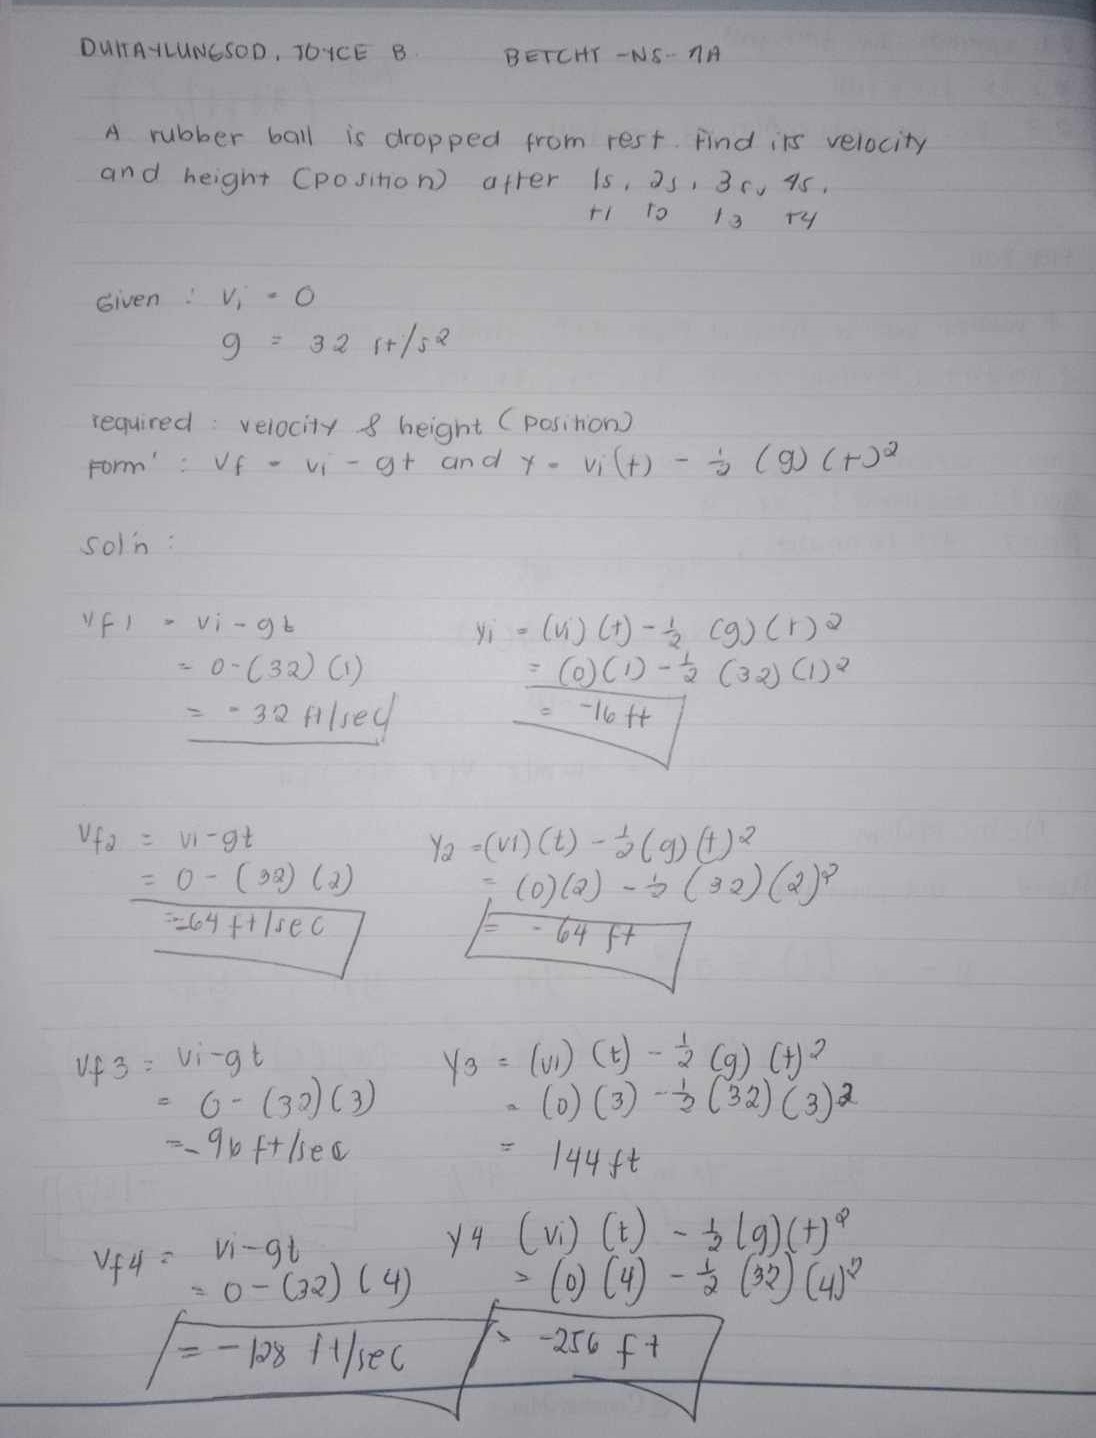 DUITAYLUNGSOD, JOYCE B. BETCHT -NS- 1A
A rubber ball is dropped from rest. Find its velocity
and height (position) after 1s, 2s, 3s, 4s.
t1 t2 t3 t4
Given : Vi = 0
g = 32 ft/s2
required : velocity & height (position)
Form' : Vf = Vi - gt and y = Vi(t) - 1/2 (g) (t)2
Sol'n :
Vf1 = Vi - gt
= 0-(32) (1)
= -32 ft/sec
y1 = (Vi) (t) - 1/2 (g) (t)2
= (0)(1) - 1/2 (32) (1)2
= -16 ft
Vf2 = Vi-gt
= 0 - (32) (2)
= -64 ft/sec
Y2 = (Vi) (t) - 1/2 (g) (t)2
= (0)(2) - 1/2 (32) (2)2
= -64 ft
Vf3 = Vi-gt
= 0- (32)(3)
= -96 ft/sec
Y3 = (Vi) (t) - 1/2 (g) (t)2
= (0) (3) - 1/2 (32) (3)2
= 144 ft
Vf4 = Vi-gt
= 0- (32) (4)
= -128 ft/sec
Y4 (Vi) (t) - 1/2 (g)(t)2
= (0) (4) - 1/2 (32) (4)2
= -256 ft